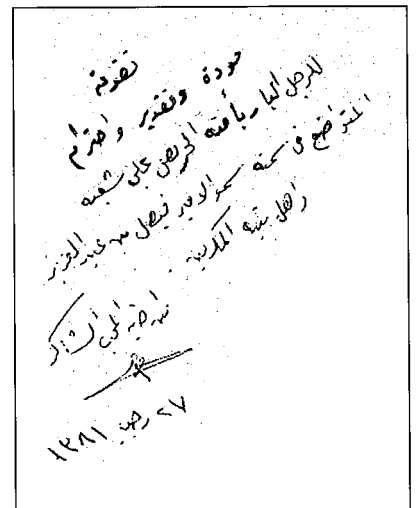 تقدمة
مودة وتقدير واحترام
للرجل البار بأمته الحريص على شعبه
المتواضع في سمته سمو الامير فيصل بن عبد العزيز
واهل بيته المكرمين
من المحب الشاكر
٢٧ رجب ١٣٨١